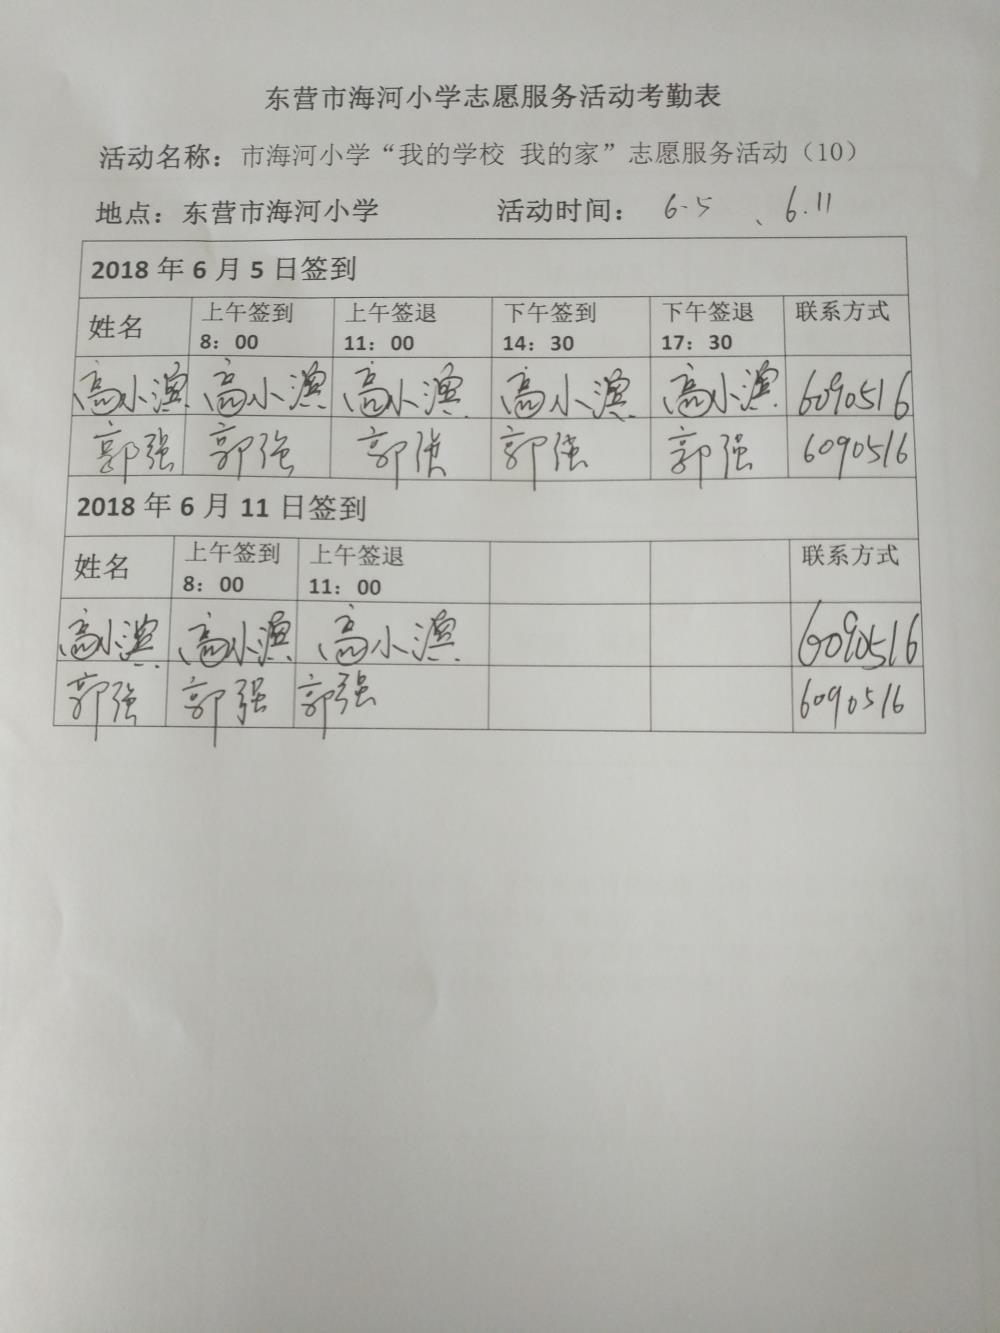 东营市海河小学志愿服务活动考勤表
活动名称：市海河小学“我的学校 我的家”志愿服务活动（10）
地点：东营市海河小学 活动时间： 6.5 、 6.11
2018 年 6 月 5 日签到
姓名 上午签到 8：00 上午签退 11：00 下午签到 14：30 下午签退 17：30 联系方式
高小渔 高小渔 高小渔 高小渔 高小渔 6090516
郭强 郭强 郭强 郭强 郭强 6090516
2018 年 6 月 11 日签到
姓名 上午签到 8：00 上午签退 11：00 联系方式
高小渔 高小渔 高小渔 6090516
郭强 郭强 郭强 6090516